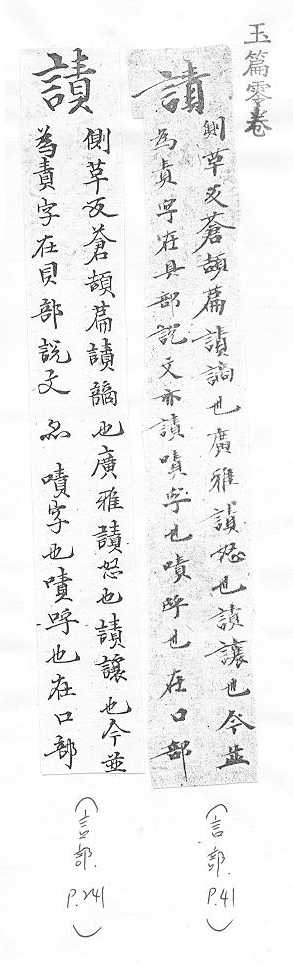 玉篇零卷
讀
側草反蒼頡篇讀謫也廣雅讀怒也讀讓也今並
為責字在貝部說文亦讀嘖字也嘖呼也在口部
(言部 P.41)
讀
側草反蒼頡篇讀謫也廣雅讀怒也讀讓也今並
為責字在貝部說文 嘖字也嘖呼也在口部
(言部 P.241)